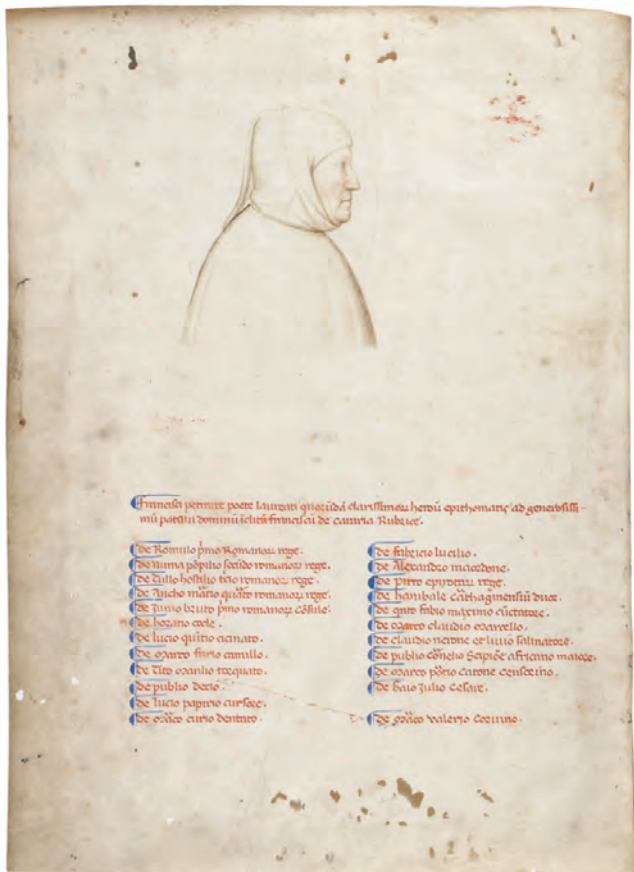 Francisci petrarce poete laureati quorūdā clarissimoꝝ heroū epithomatis ad generosissi-
mū patauī dominū īclitū franciscū de carraria Rubrice.
de Romulo p̄mo Romanoꝝ rege.
de Numa pōpilio secūdo romanoꝝ rege.
de Tullo hostilio t̄cio romanoꝝ rege.
de Ancho mārtio quārto romanoꝝ rege.
de Junio bruto p̄mo romanoꝝ cōsule.
de horatio cocle.
de lucio quītio cīcinato.
de Marco furio camillo.
de Tito Manlio torquato.
de publio decio.
de lucio papirio cursore.
de Mārco curio dentato.
de fabricio lucinio.
de Alexandro macedone.
de pirro epirotaꝝ rege.
de hanibale cārthaginensiū duce.
de qūto fabio maximo cūctatore.
de Marco claudio Marcello.
de claudio nerone et liuio salinatore.
de publio cōrnelio Scipiōe africano maiore.
de Marco pōrtio catone censorino.
de Gaio Julio Cesare.
de Mārco valerio coruino.